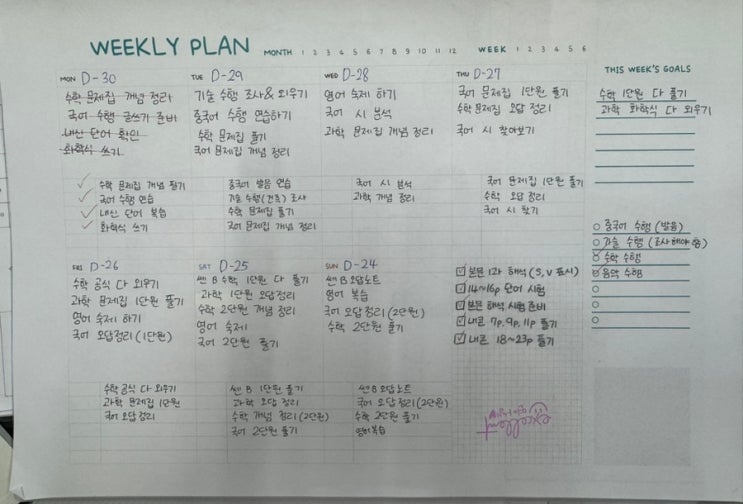 WEEKLY PLAN MONTH 1 2 3 4 5 6 7 8 9 10 11 12 WEEK 1 2 3 4 5 6
MON D-30
수학 문제집 개념 정리
국어 수행 글쓰기 준비
내신 단어 확인
화학식 쓰기
수학 문제집 개념 필기
국어 수행 연습
내신 단어 복습
화학식 쓰기
TUE D-29
기술 수행 조사 & 외우기
중국어 수행 연습하기
수학 문제집 풀기
국어 문제집 개념 정리
중국어 발음 연습
기술 수행(건축) 조사
수학 문제집 풀기
국어 문제집 개념 정리
WED D-28
영어 숙제 하기
국어 시 분석
과학 문제집 개념 정리
국어 시 분석
과학 개념 정리
THU D-27
국어 문제집 1단원 풀기
수학 문제집 오답 정리
국어 시 찾아보기
국어 문제집 1단원 풀기
수학 오답 정리
국어 시 찾기
THIS WEEK'S GOALS
수학 1단원 다 풀기
과학 화학식 다 외우기
중국어 수행 (발음)
기술 수행 (조사해야 함)
수학 수행
음악 수행
FRI D-26
수학 공식 다 외우기
과학 문제집 1단원 풀기
영어 숙제 하기
국어 오답정리 (1단원)
수학공식 다 외우기
과학 문제집 1단원
국어 오답정리
SAT D-25
쎈 B 수학 1단원 다 풀기
과학 1단원 오답정리
수학 2단원 개념 정리
영어 숙제
국어 2단원 풀기
쎈 B 1단원 풀기
과학 오답 정리
수학 개념 정리 (2단원)
국어 2단원 풀기
SUN D-24
쎈B 오답노트
영어 복습
국어 오답정리 (2단원)
수학 2단원 풀기
쎈B 오답노트
국어 오답 정리 (2단원)
수학 2단원 풀기
영어복습
본문 1과 해석 (S, V 표시)
14~16p 단어 시험
본문 해석 시험 준비
내콘 7p, 9p, 11p 풀기
내콘 18~23p 풀기
excellent